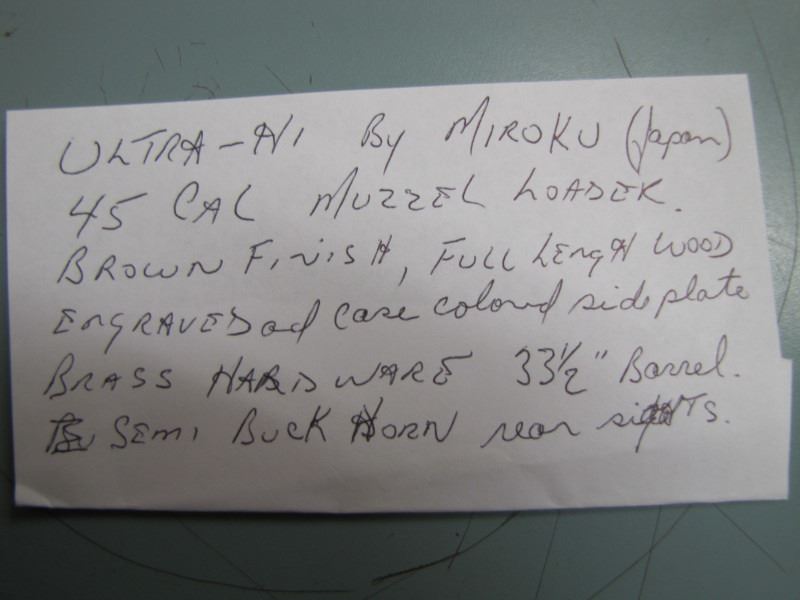 ULTRA-HI By MIROKU (Japan)
45 CAL MUZZEL LOADER.
BROWN FINISH, FULL LENGH WOOD
ENGRAVED ad case colored side plate
BRASS HARDWARE 33½" Barrel.
SEMI BUCK HORN rear sigHTS.